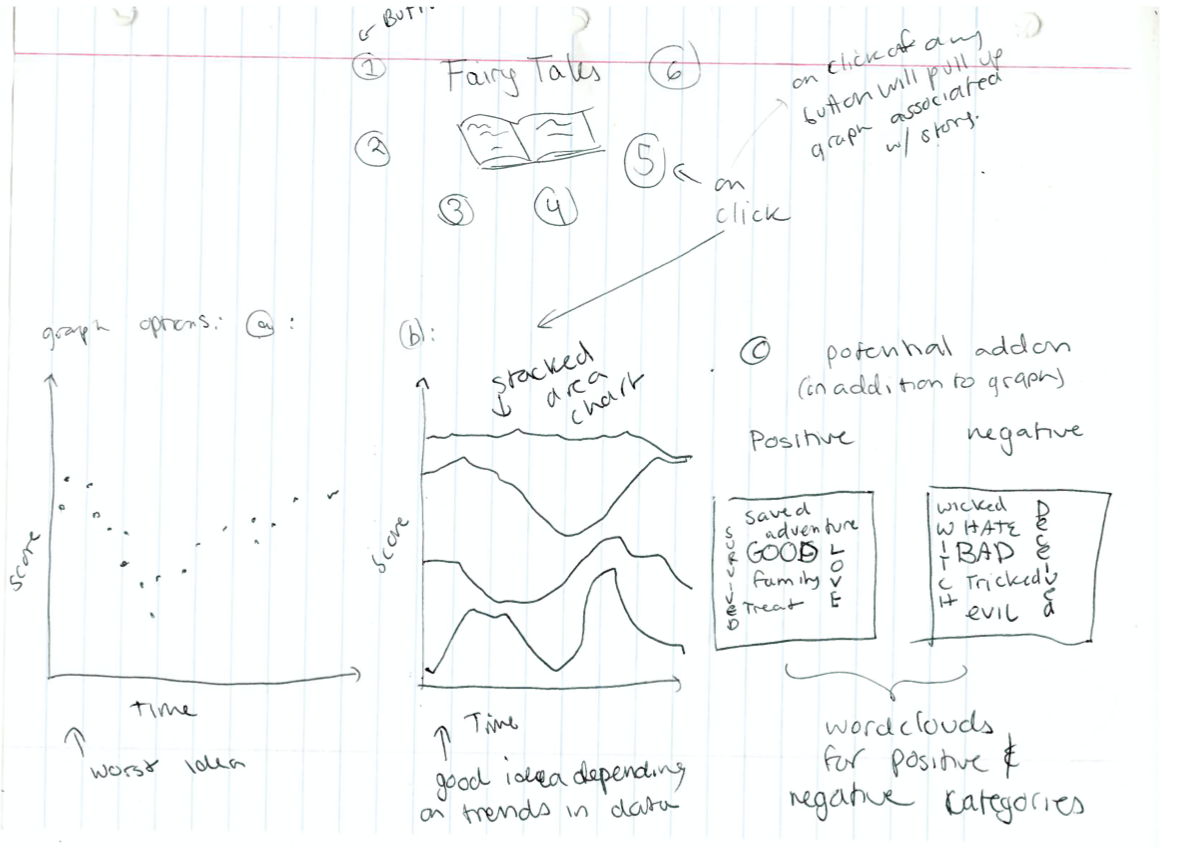 ① Fairy Tales ⑥
②
⑤
③ ④
on click of any
button will pull up
graph associated
w/ story.
on
click
graph options: ⓐ :
Score
Time
worst idea
ⓑ:
stacked
area
chart
Score
Time
good idea depending
on trends in data
ⓒ potential addon
(in addition to graph)
Positive
negative
saved
adventure
GOOD
family
Treat
SURVIVED
LOVE
wicked
HATE
BAD
Tricked
evil
WITCH
wordclouds
for positive &
negative categories